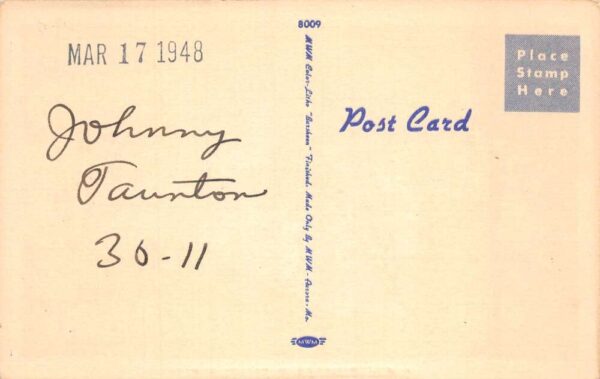 MAR 17 1948
Johnny
Taunton
30-11
8009
MWM Color-Litho "Lusheen" Finished. Made Only By MWM - Aurora, Mo.
MWM
Post Card
Place
Stamp
Here